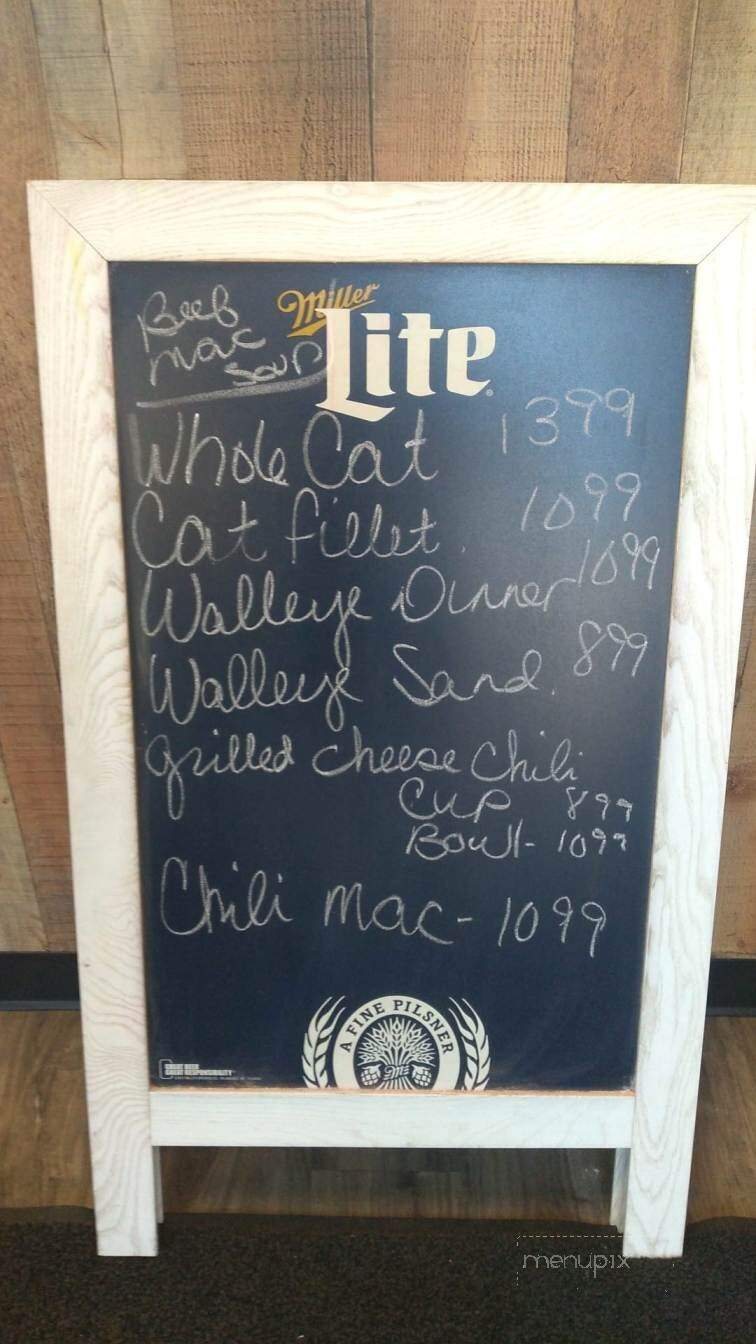 Beef
mac
Soup
Miller
Lite
Whole Cat 1399
Cat fillet 1099
Walleye Dinner 1099
Walleye Sand. 899
grilled cheese Chili
Cup 899
Bowl- 1099
Chili mac- 1099
A FINE PILSNER
GREAT BEER
GREAT RESPONSIBILITY
menupix